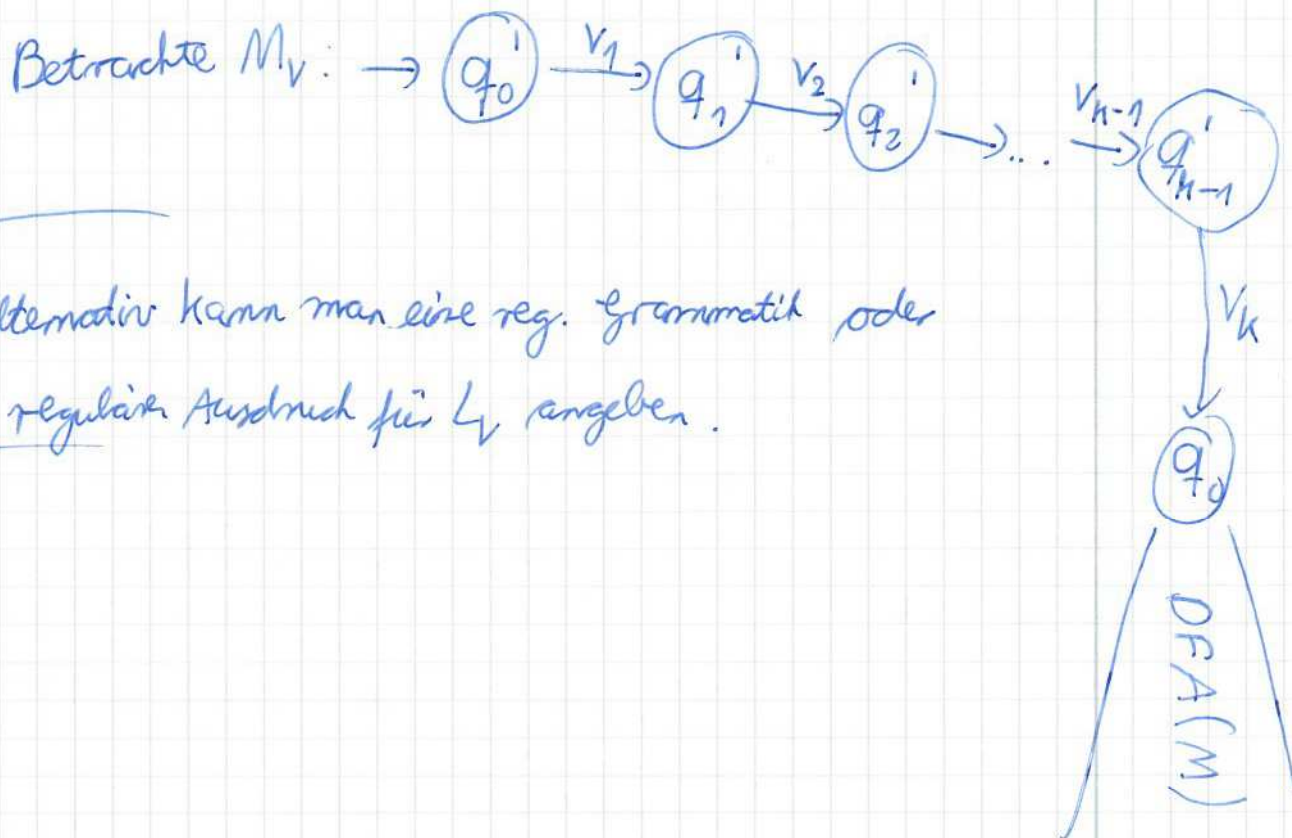 Betrachte M_v: → q_0' v_1 → q_1' v_2 → q_2' → ... v_{k-1} → q'_{k-1}
v_k
lternativ kann man eine reg. Grammatik oder
regulären Ausdruck für L_v angeben.
q_0
DFA(M)